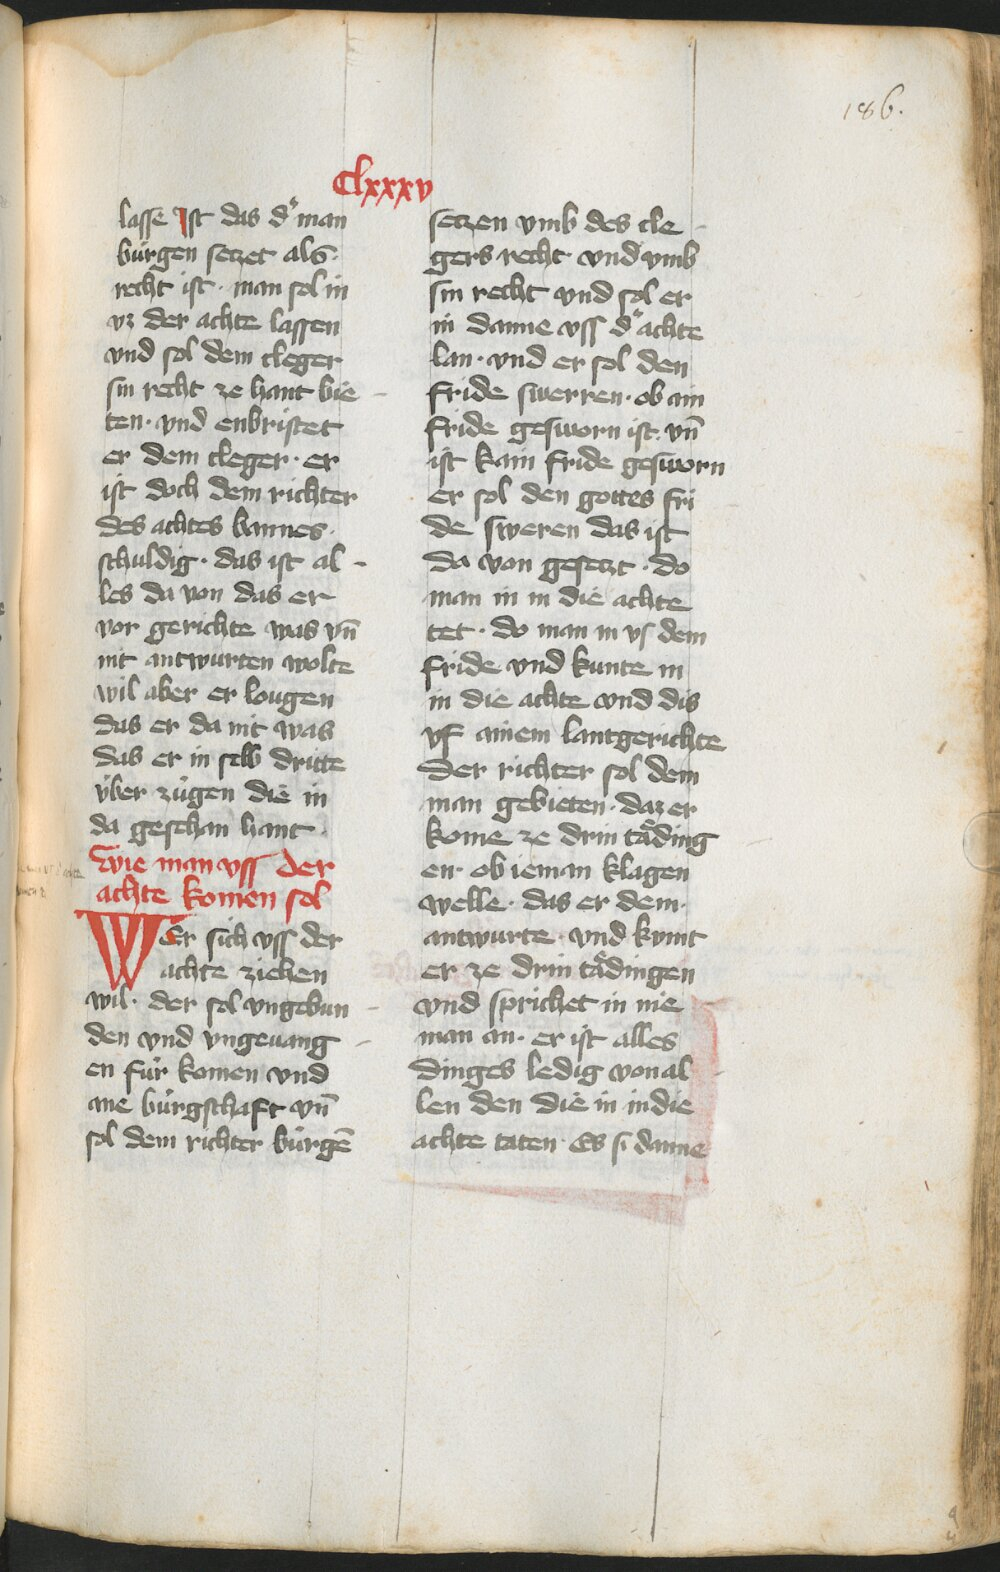 186.
Clxxxv
lasse Ist das d᷑ man
bürgen setzet als·
recht ist· man sol in
vz der achte lassen
vnd sol dem cleger
sin recht ze hant bie
ten· vnd enbristet
er dem cleger· er
ist doch dem richter
des achtes bannes·
schuldig· das ist al
les da von das er
vor gerichte was vn̄
nit antwurten wolte
wil aber er lougen
das er da nit was
das er in selb dritte
über zügen die in
da gesehan hant·
Wie man vss der
achte komen sol
WEr sich vss der
achte ziehen
wil· der sol vngebun
den vnd vngeuang
en für komen vnd
ane bürgschaft vn̄
sol dem richter bürgē
setzen vmb des cle
gers recht· vnd vmb
sin recht vnd sol er
in danne vss d᷑ achte
lan· vnd er sol den
fride swerren· ob ain
fride gesworn ist· vn̄
ist kain fride gesworn
er sol den gottes fri
de sweren das ist
da von gesetzt· do
man in in die achte
tet· do man in vs dem
fride vnd kunte in
in die achte vnd dis
vf ainem lantgerichte
Der richter sol dem
man gebieten· daz er
kome ze drin täding
en· ob ieman klagen
welle· das er dem·
antwurte· vnd kumt
er ze drin tädingen
vnd sprichet in nie
man an· er ist alles
dinges ledig von al
len den die in in die
achte taten· Es si danne